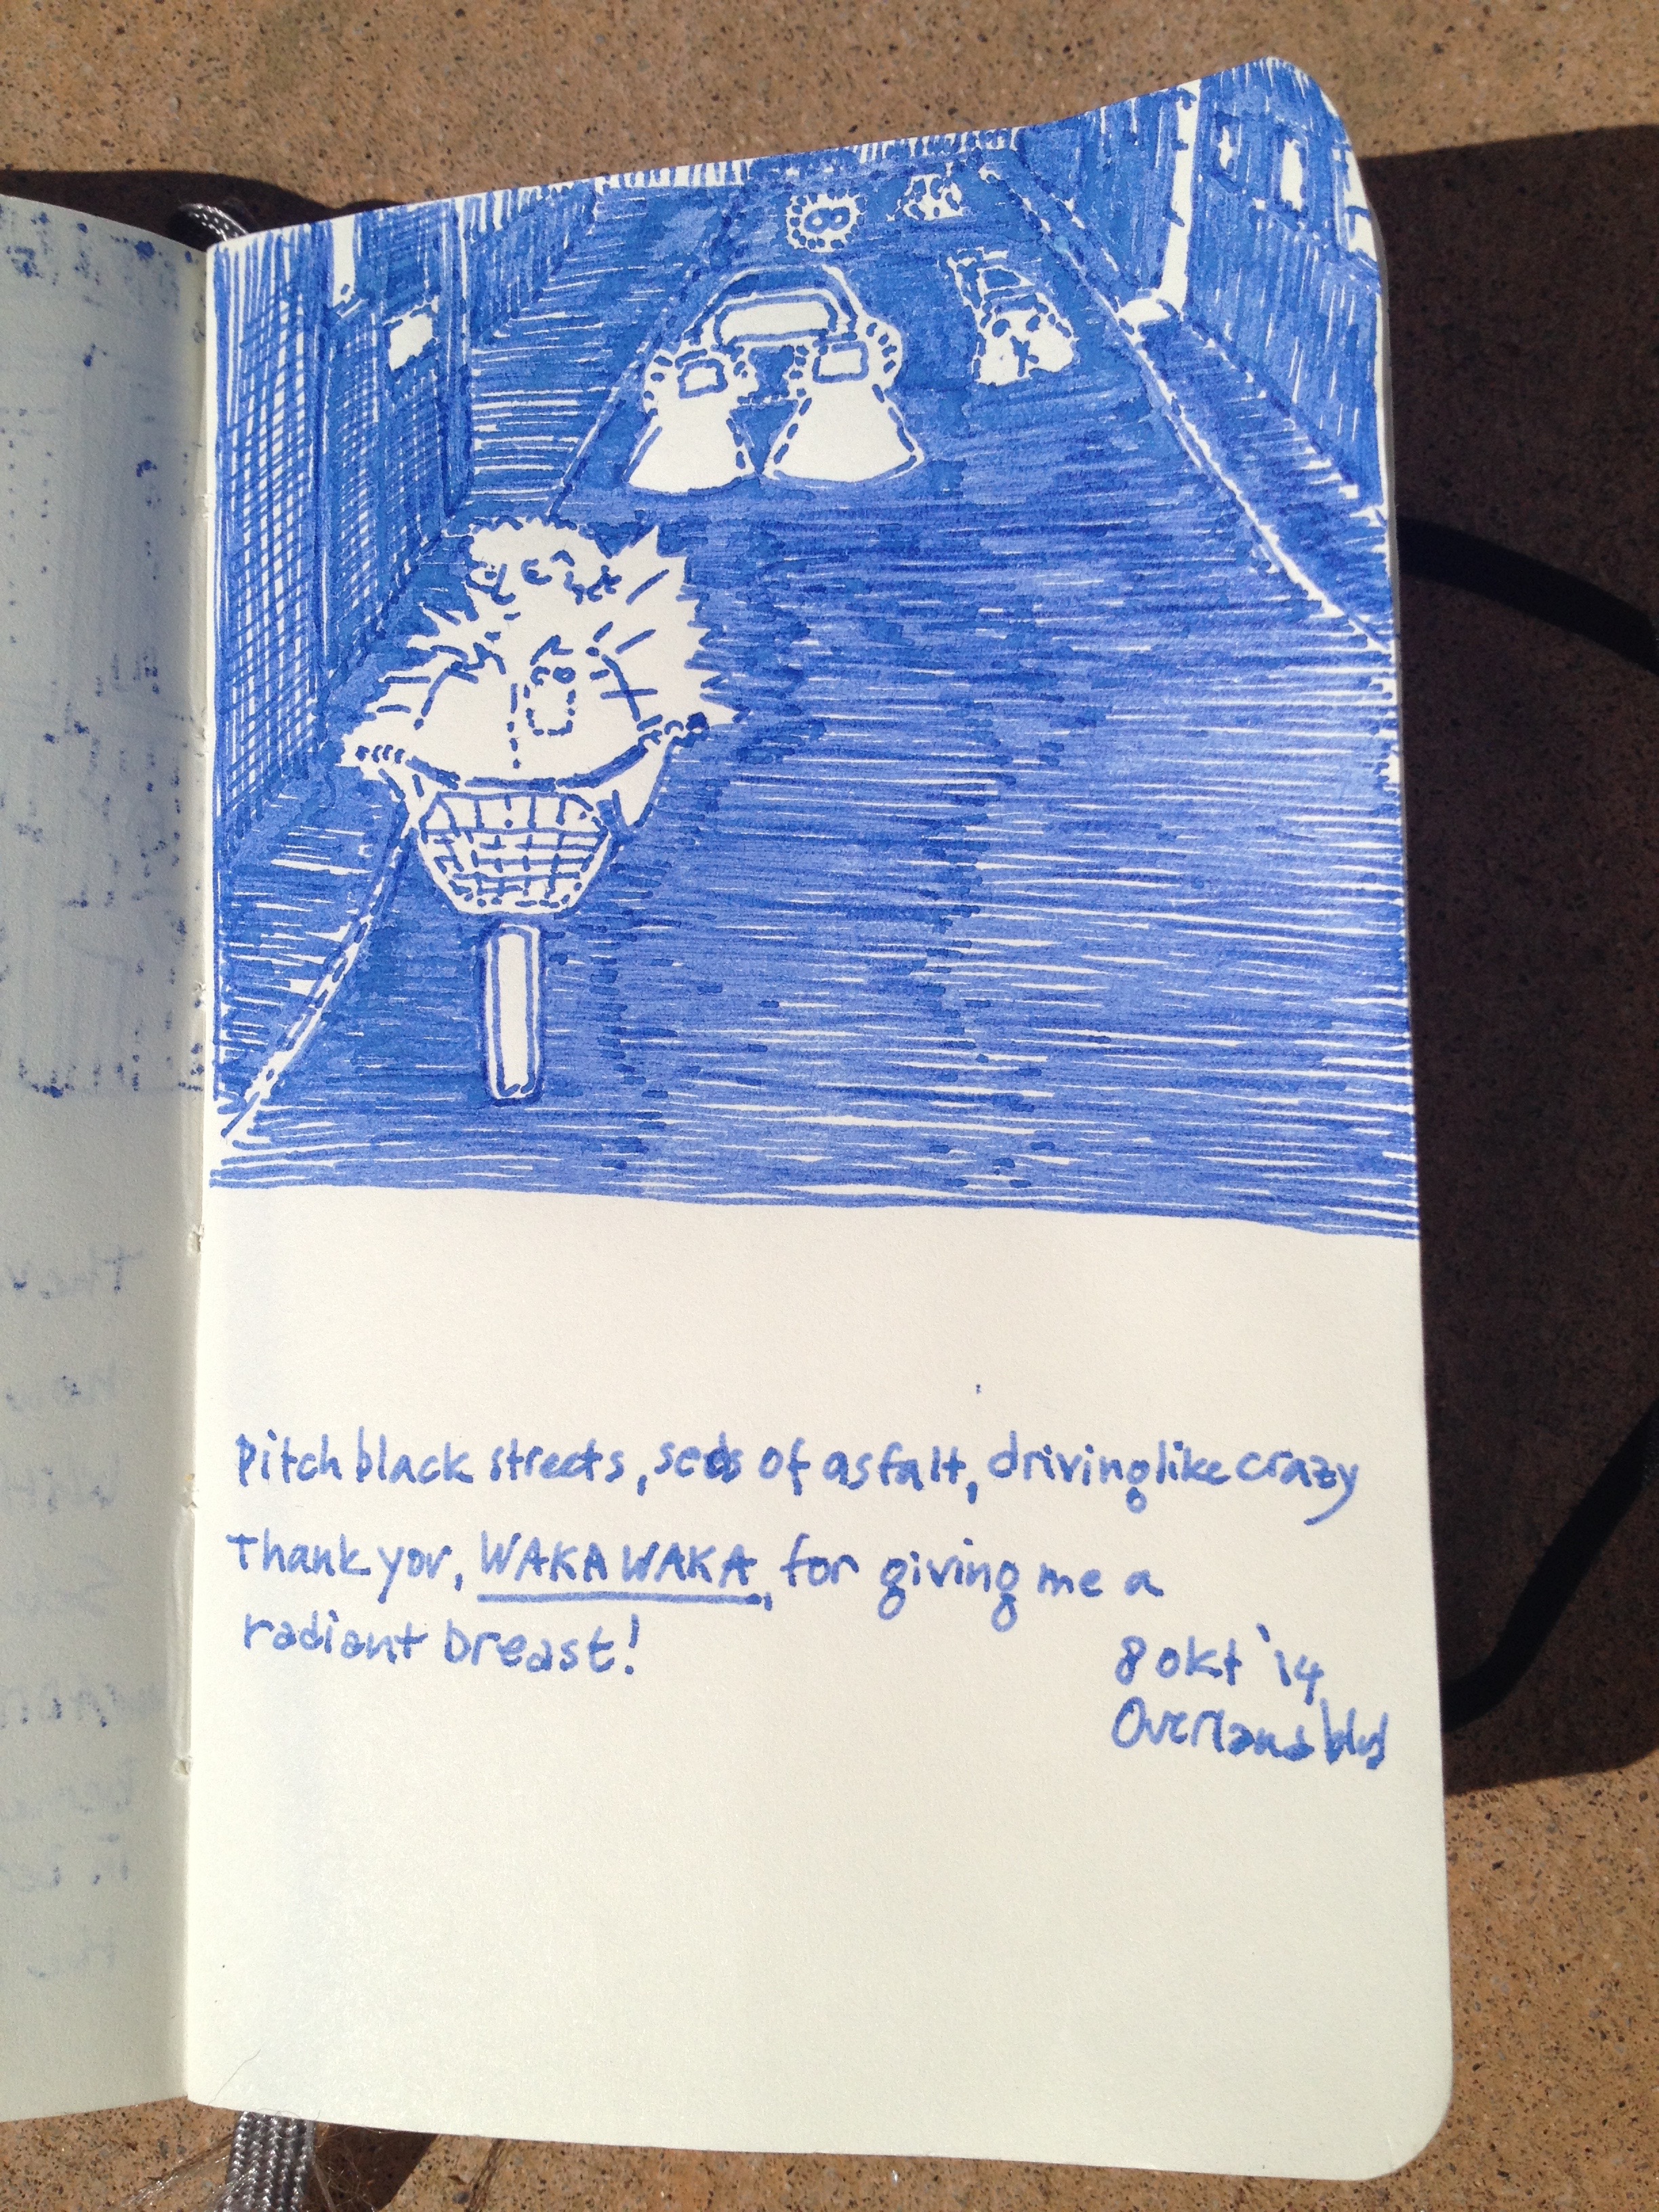 Pitch black streets, seas of asfalt, driving like crazy
Thank you, WAKA WAKA, for giving me a
radiant breast!
8 okt '14
Overland blvd